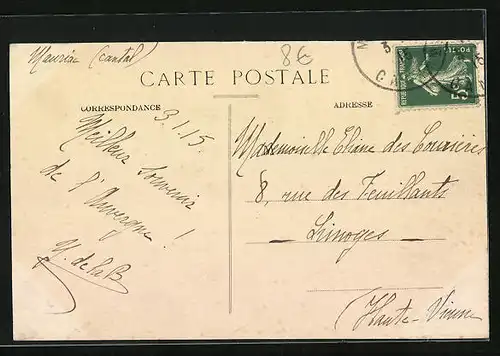 Mauriac (Cantal)
8€
CARTE POSTALE
CORRESPONDANCE
3.1.15.
Meilleur souvenir
de l'Auvergne !
de la B
ADRESSE
Mademoiselle Eliane des
8, rue des Feuillants
Limoges
(Haute-Vienne